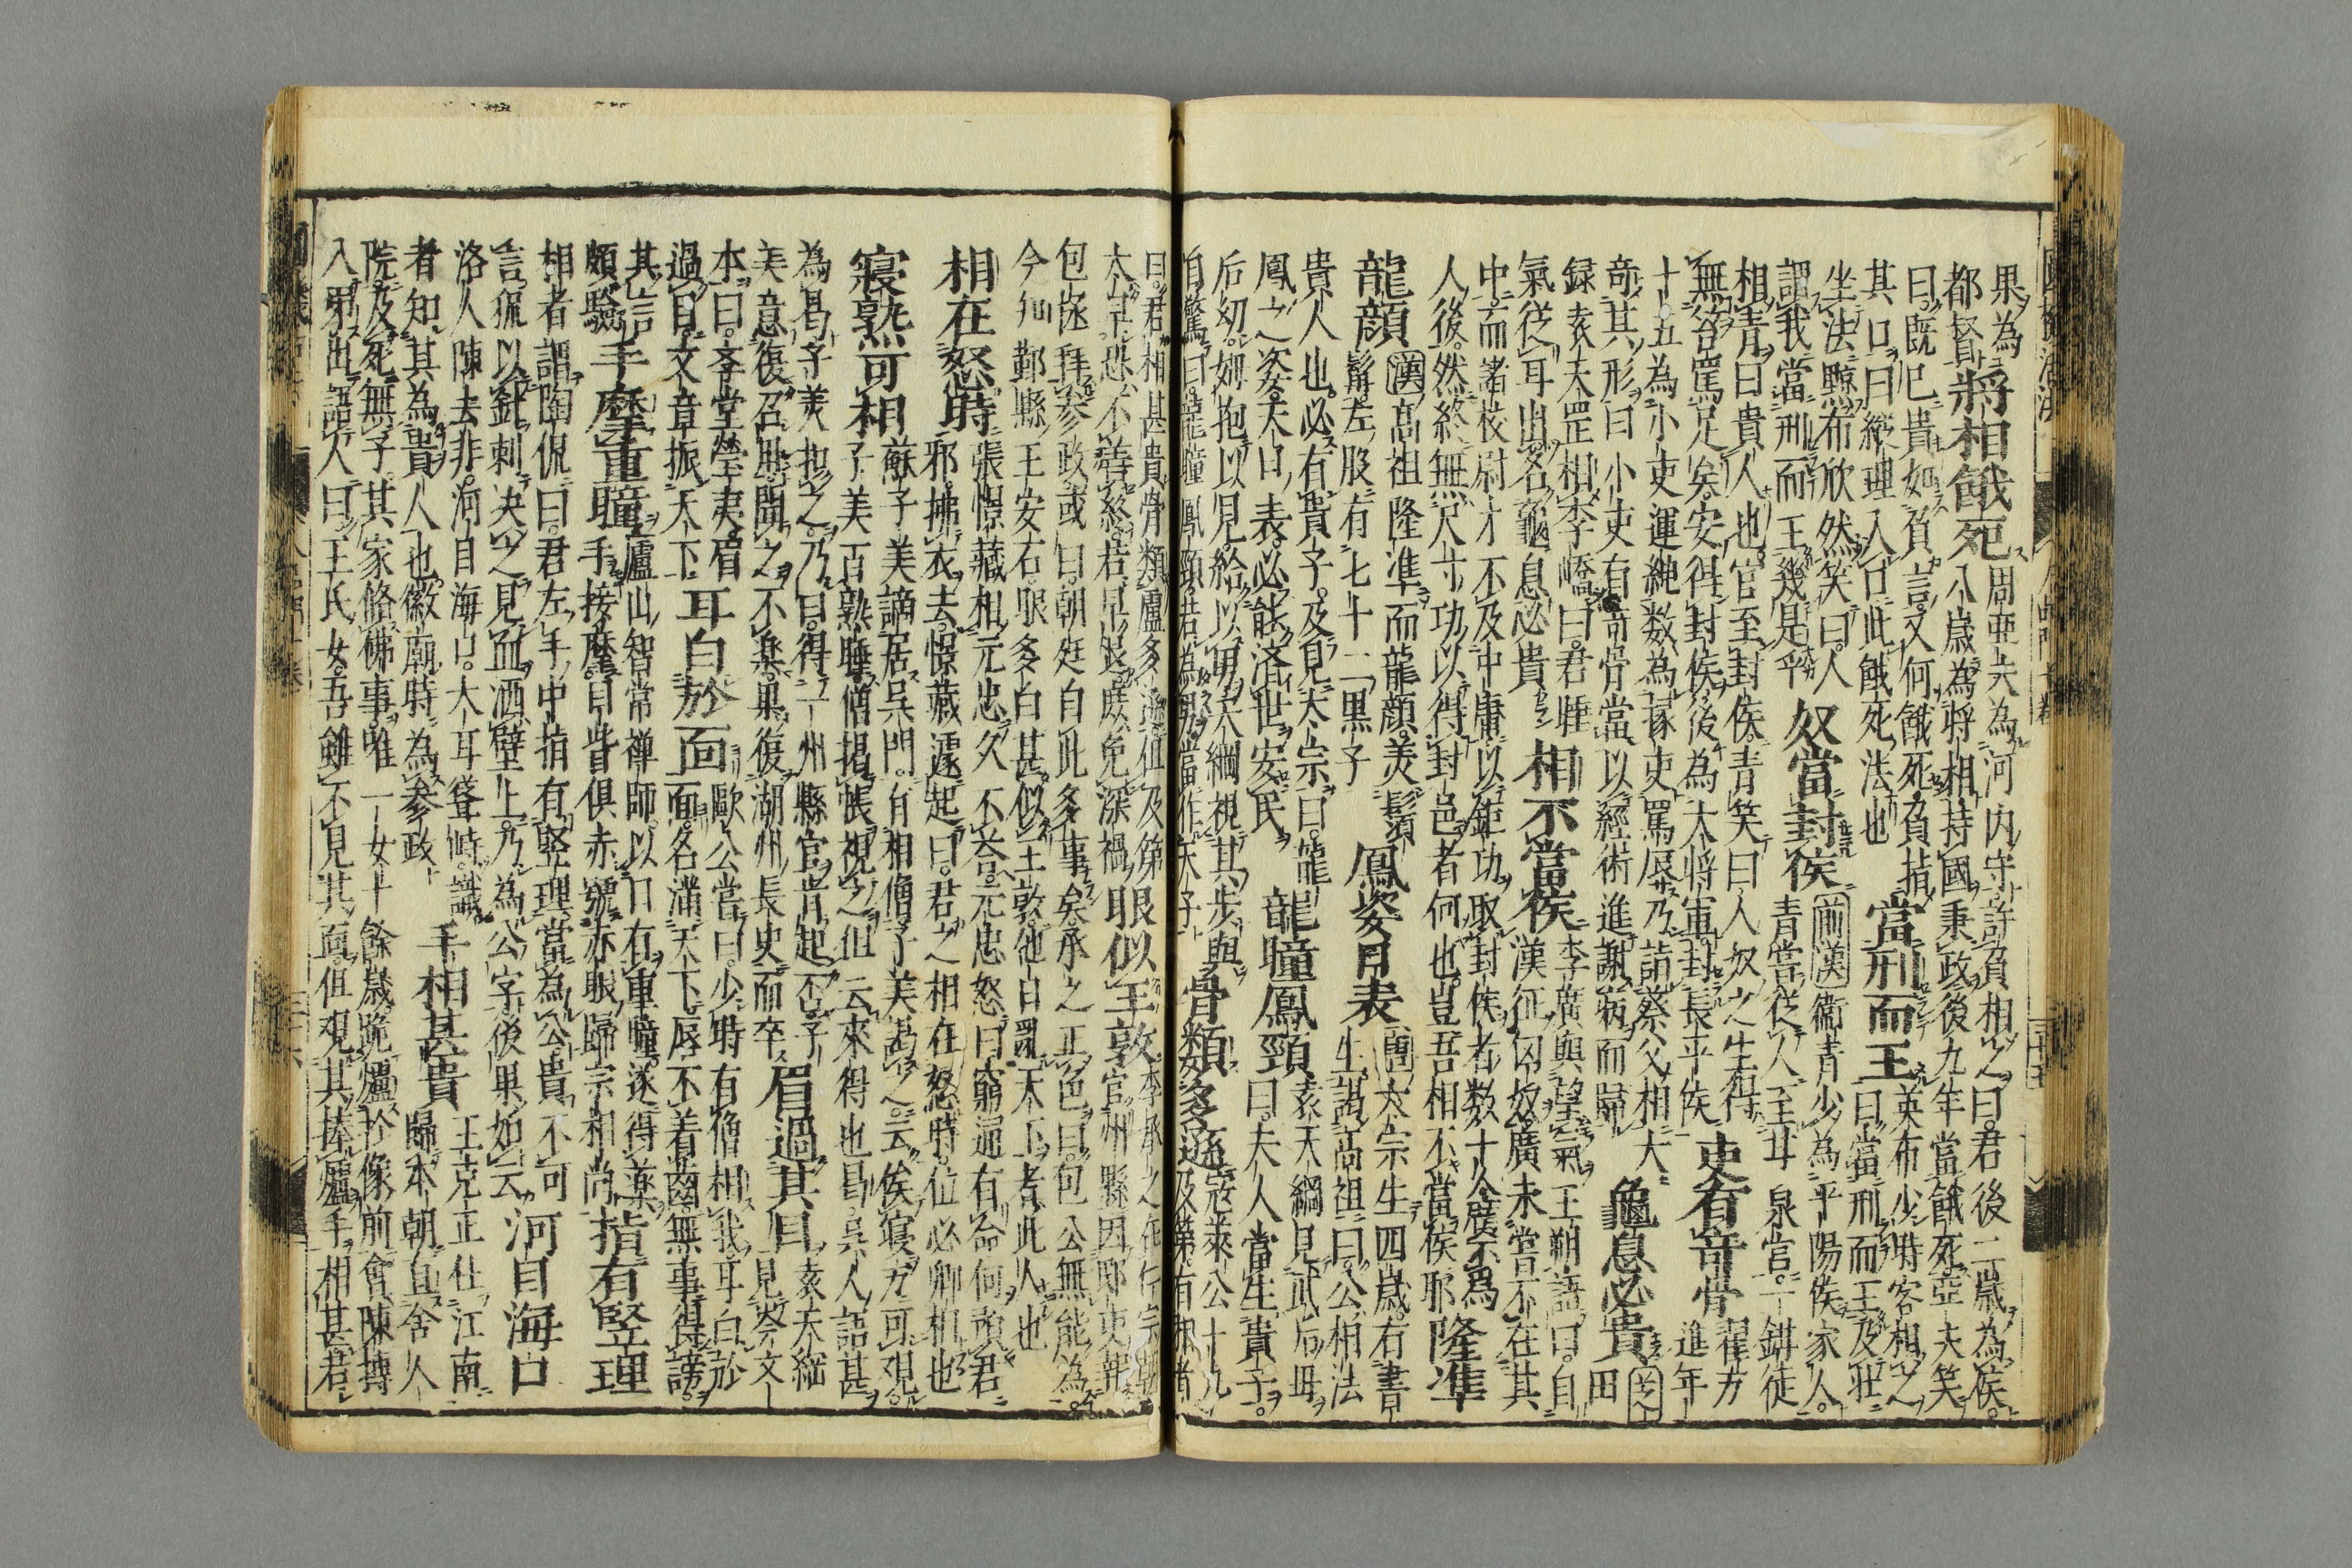 果為
都督
將相餓死
周亞夫為河内守許負相之曰君後三歲為侯
八歳為將相持國秉政後九年當餓死亞夫笑
曰既已貴如負言又何餓死負指
其口曰縱理入口此餓死法也
當刑而王
英布少時客相之
曰當刑而王及壯
坐法黥布欣然笑曰人
謂我當刑而王幾是乎
奴當封侯
前漢衛青少為平陽侯家人
青嘗從人至甘泉宮一鉗徒
相青曰貴人也官至封侯青笑曰人奴之生得
無笞罵足矣安得封侯後為大將軍封長平侯
吏有竒骨
翟方
進年
十五為小吏運純数為掾吏罵辱乃詣蔡父相大
竒其形曰小吏有竒骨當以經術進謝病而歸
龜息必貴
芝田
録袁天罡相李嶠曰君睡
氣從耳出名龜息必貴
相不當侯
李廣與望氣王朔語曰自
漢征匈奴廣未嘗不在其
中而諸校尉才不及中庸以軍功取封侯者数十人廣不為
人後然終無尺寸功以得封邑者何也豈吾相不當侯耶
隆準
龍顔
漢高祖隆準而龍顔美鬚
髯左股有七十二黒子
鳳姿日表
唐太宗生四歳有書
生謁高祖曰公相法
貴人也必有貴子及見太宗曰龍
鳳之姿天日表必能済世安民
龍瞳鳳頸
袁天綱見武后母
曰夫人當生貴子
后幼姆抱以見紿以男天綱視其歩與
自驚曰龍瞳鳳頸若為男當作天子
骨類多遜
寇萊公十九
及第有相者
曰君相甚貴骨類盧多遜但及第
太早恐不善終若早退庶免深禍
眼似王敦
李承之在仁宗朝
官州縣因邸吏報
包拯拜參政或曰朝廷自此多事矣承之正色曰包公無能為
今知鄞縣王安石眼多白甚似王敦他日亂天下者此人也
相在怒時
張憬藏相元忠久不答元忠怒曰窮通有命何預君
邪拂衣去憬藏遽起曰君之相在怒時位必卿相也
寢熟可相
蘇子美謫居呉門有相僧子美謁之云俟寢方可視
子美百熟睡僧掲帳視之但云來得也曷呉人語甚
為曷子美扣之乃曰得一州縣官肯起否子
美意復召用聞之不楽果復湖州長史而卒
眉過其目
袁天綱
見岑文
本曰孝堂瑩夷眉
過目文章振天下
耳白於面
歐公嘗曰少時有僧相我耳白於
面名滿天下唇不着齒無事得謗
其言
頗驗
手摩重瞳
廬山智常禅師以目有重瞳遂得薬
手按摩目眥倶赤號赤眼歸宗相尚
指有竪理
相者謂陶侃曰君左手中指有竪理當為公貴不可
言侃以針刺决之見血洒壁上乃為公字後果如云
河目海口
洛人陳去非河目海口大耳聳峙識
者知其為貴人也徽廟時為參政
手相甚貴
王克正仕江南
歸本朝直舍人
院及死無子其家脩佛事唯一女十餘歳跪爐於像前會陳摶
入弔出語人曰王氏女吾雖不見其面但視其捧爐手相甚貴